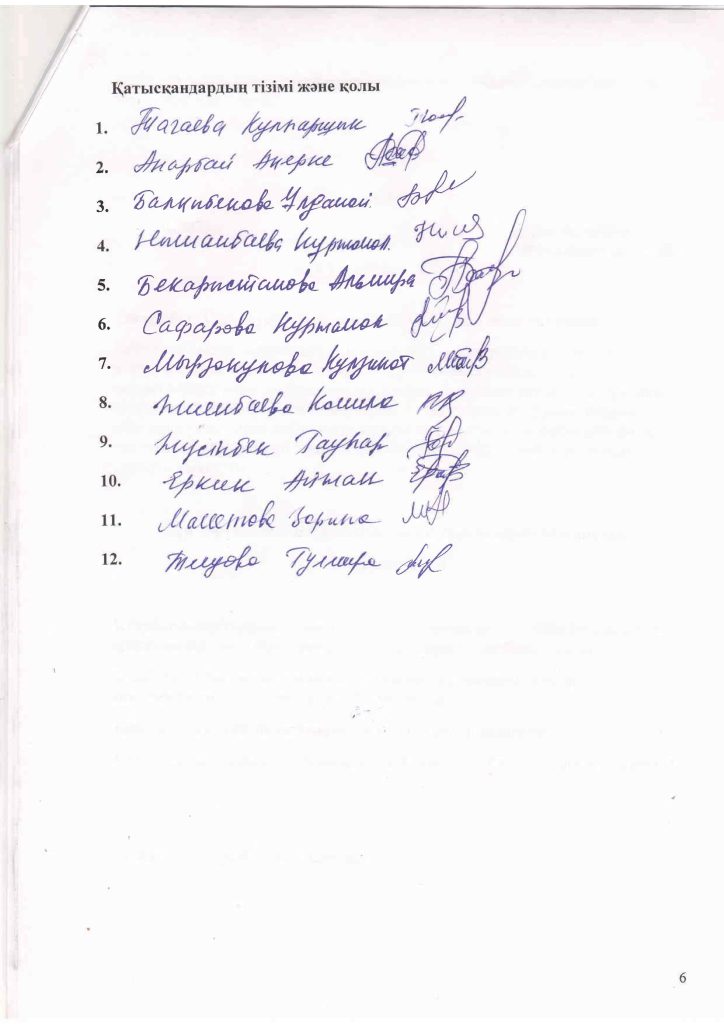 Қатысқандардың тізімі және қолы
1. Тағаева Кулпаршын
2. Анарбай Ақерке
3. Балқыбекова Ұлданай.
4. Нышанбаева Нуржамал.
5. Бекарыстанова Альмира
6. Сафарова Нуржамал
7. Мырзакулова Кулзинат
8. Жиенбаева Камила
9. Жүсіпбек Гауһар
10. Еркин Айжан
11. Машетова Зарина
12. Гулмира
6